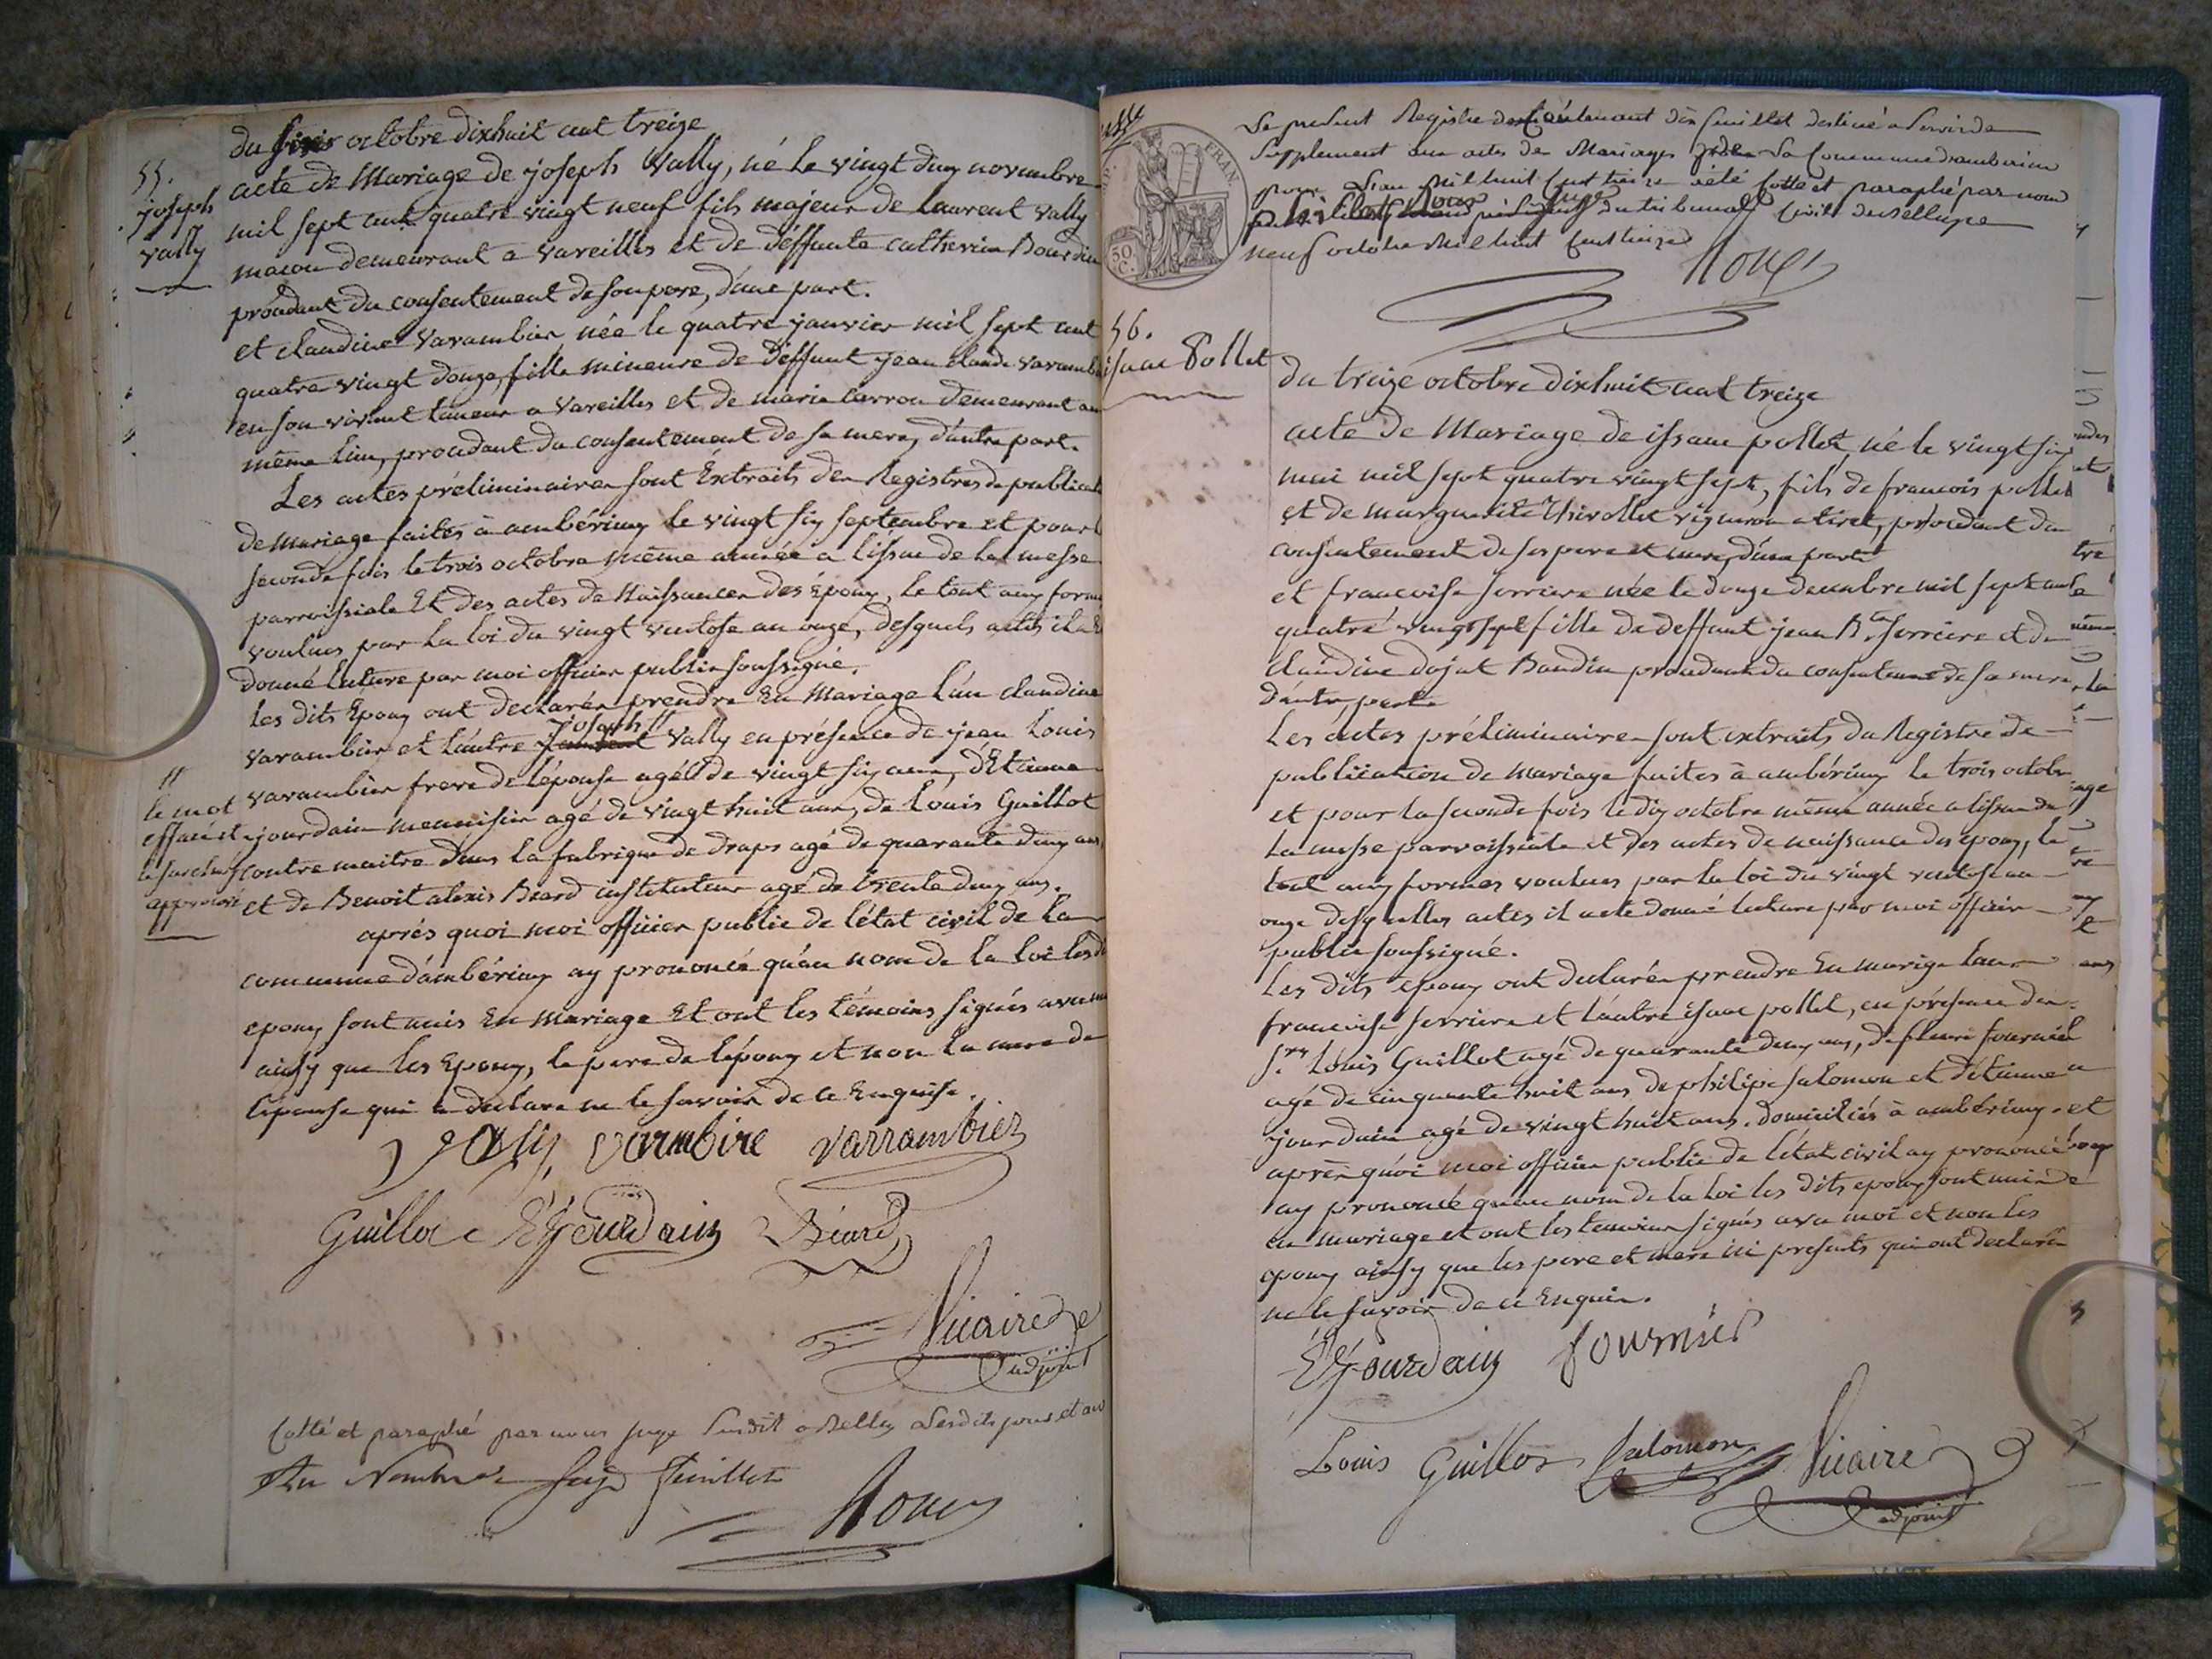 du six octobre dixhuit cent treize
55.
joseph
vally
acte de Mariage de joseph vally, né le vingt deux novembre
mil sept cent quatre vingt neuf fils majeur de Laurent vally
macon demeurant a vareilles et de déffunte catherine Bourdin
procédant du consentement de son pere, d'une part.
et claudine varambier, née le quatre janvier mil sept cent
quatre vingt douze, fille mineure de déffunt jean claude varamb
en son vivant taneur a vareilles et de marie carron demeurant au
même lieu, procedant du consentement de sa mere, d'autre part.
Les actes préliminaires sont Extraits des Registres de publicat
de mariage faites à ambérieux le vingt six septembre et pour l
seconde fois le trois octobre même année a l'issue de la messe
parroissiale Et des actes de Naissances des époux, le tout aux form
voulues par la loi du vingt ventose an onze, desquels actes il a
donné lecture par moi officier public soussigné.
les dits Epoux ont declarés prendre En Mariage l'un claudine
varambier et l'autre joseph // vally en présence de jean Louis
varambier frere de l'épouse agé de vingt six ans, d'Etienne
jourdain menuisier agé de vingt huit ans, de Louis Guillot
contre maitre dans la fabrique de draps agé de quarante deux ans,
et de Benoit alexis Béard instituteur agé de trente deux ans.
//
le mot
effacé et
le surcharg
approuvé
aprés quoi moi officier public de l'état civil de la
commune d'ambérieux ay prononcé qu'au nom de la loi les d
epoux sont unis En Mariage Et ont les témoins signés avec m
ainsy que les Epoux, le pere de l'époux et non la mere de
l'épouse qui a declaré ne le savoir de ce Enquise.
vally varmbire varrambier
Guillot E Jourdain Béard
Vicaire
adjoint
Cotté et paraphé par nous juge susdit a Belley lesdits jour et an
Au Nombre de Seize feuillets
Roux
Le present Registre contenant dix feuillet destiné a Servir de
Supplement aux actes de Mariages de la Commune d'amberieux
pour l'an Mil huit Cent treize a été Cotté et paraphé par nous
du tribunal Civil de Belley
neuf octobre Mil huit Cent treize
Roux
FRAN.
50.
C.
56.
isaac Pollet
du treize octobre dixhuit cent treize
acte de Mariage de issaac pollet, né le vingt six
mai mil sept quatre vingt sept, fils de francois pollet
et de marguerite Thivollet vigneron a tiret, procédant du
consentement de ses pere et mere, d'une part
et francoise ferriere née le douze decembre mil sept cent
quatre vingt sept fille de deffunt jean B.te ferriere et de
claudine dojat Baudin procédant du consentement de sa mere
d'autre parte
Les actes préliminaires sont extraits du Registre de
publication de mariage faites à ambérieux le trois octobr
et pour la seconde fois le dix octobre même année a l'issue de
la messe parroissiale et des actes de naissance des époux, le
tout aux formes voulues par la loi du vingt ventose an
onze desquelles actes il a été donné lecture par moi officier
public soussigné.
Les dits epoux ont declarés prendre En mariage l'un
francoise ferriere et l'autre isaac pollet, en présence des
s.rs Louis Guillot agé de quarante deux ans, de fleuri fournier
agé de cinquante huit ans de philipe salomon et d'étienne
jourdain agé de vingt huit ans, domiciliés à ambérieux.
aprés quoi moi officier public de l'état civil ay prononcé
ay prononcé qu'au nom de la loi les dits epoux sont unis
en mariage et ont les temoins signés avec moi et non les
epoux ainsy que les pere et mere ici presents qui ont declaré
ne le savoir de ce Enquis.
E Jourdain fournier
Louis Guillot Salomon Vicaire
adjoint